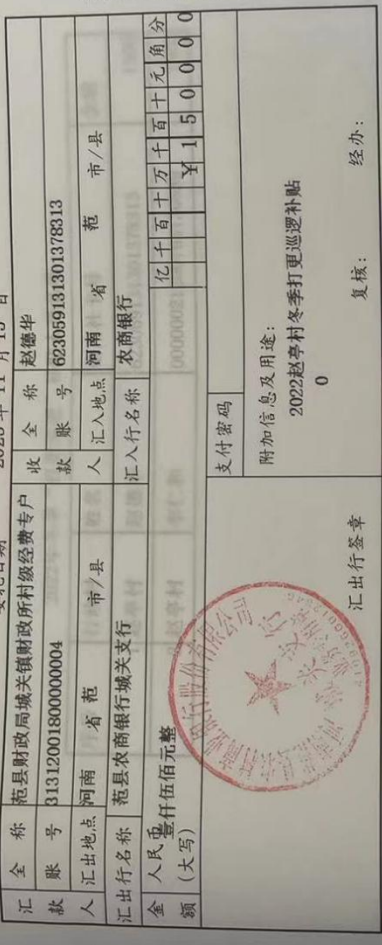 2023 年 11 月 15 日
汇款人 全称 范县财政局城关镇财政所村级经费专户 收款人 全称 赵德华
账号 31312001800000004 账号 6230591313013​78313
汇出地点 河南 省 范 市/县 汇入地点 河南 省 范 市/县
汇出行名称 范县农商银行城关支行 汇入行名称 农商银行
金额 人民币（大写） 壹仟伍佰元整 亿千百十万千百十元角分
¥150000
支付密码
附加信息及用途：
2022赵亭村冬季打更巡逻补贴
0
汇出行签章 复核： 经办：